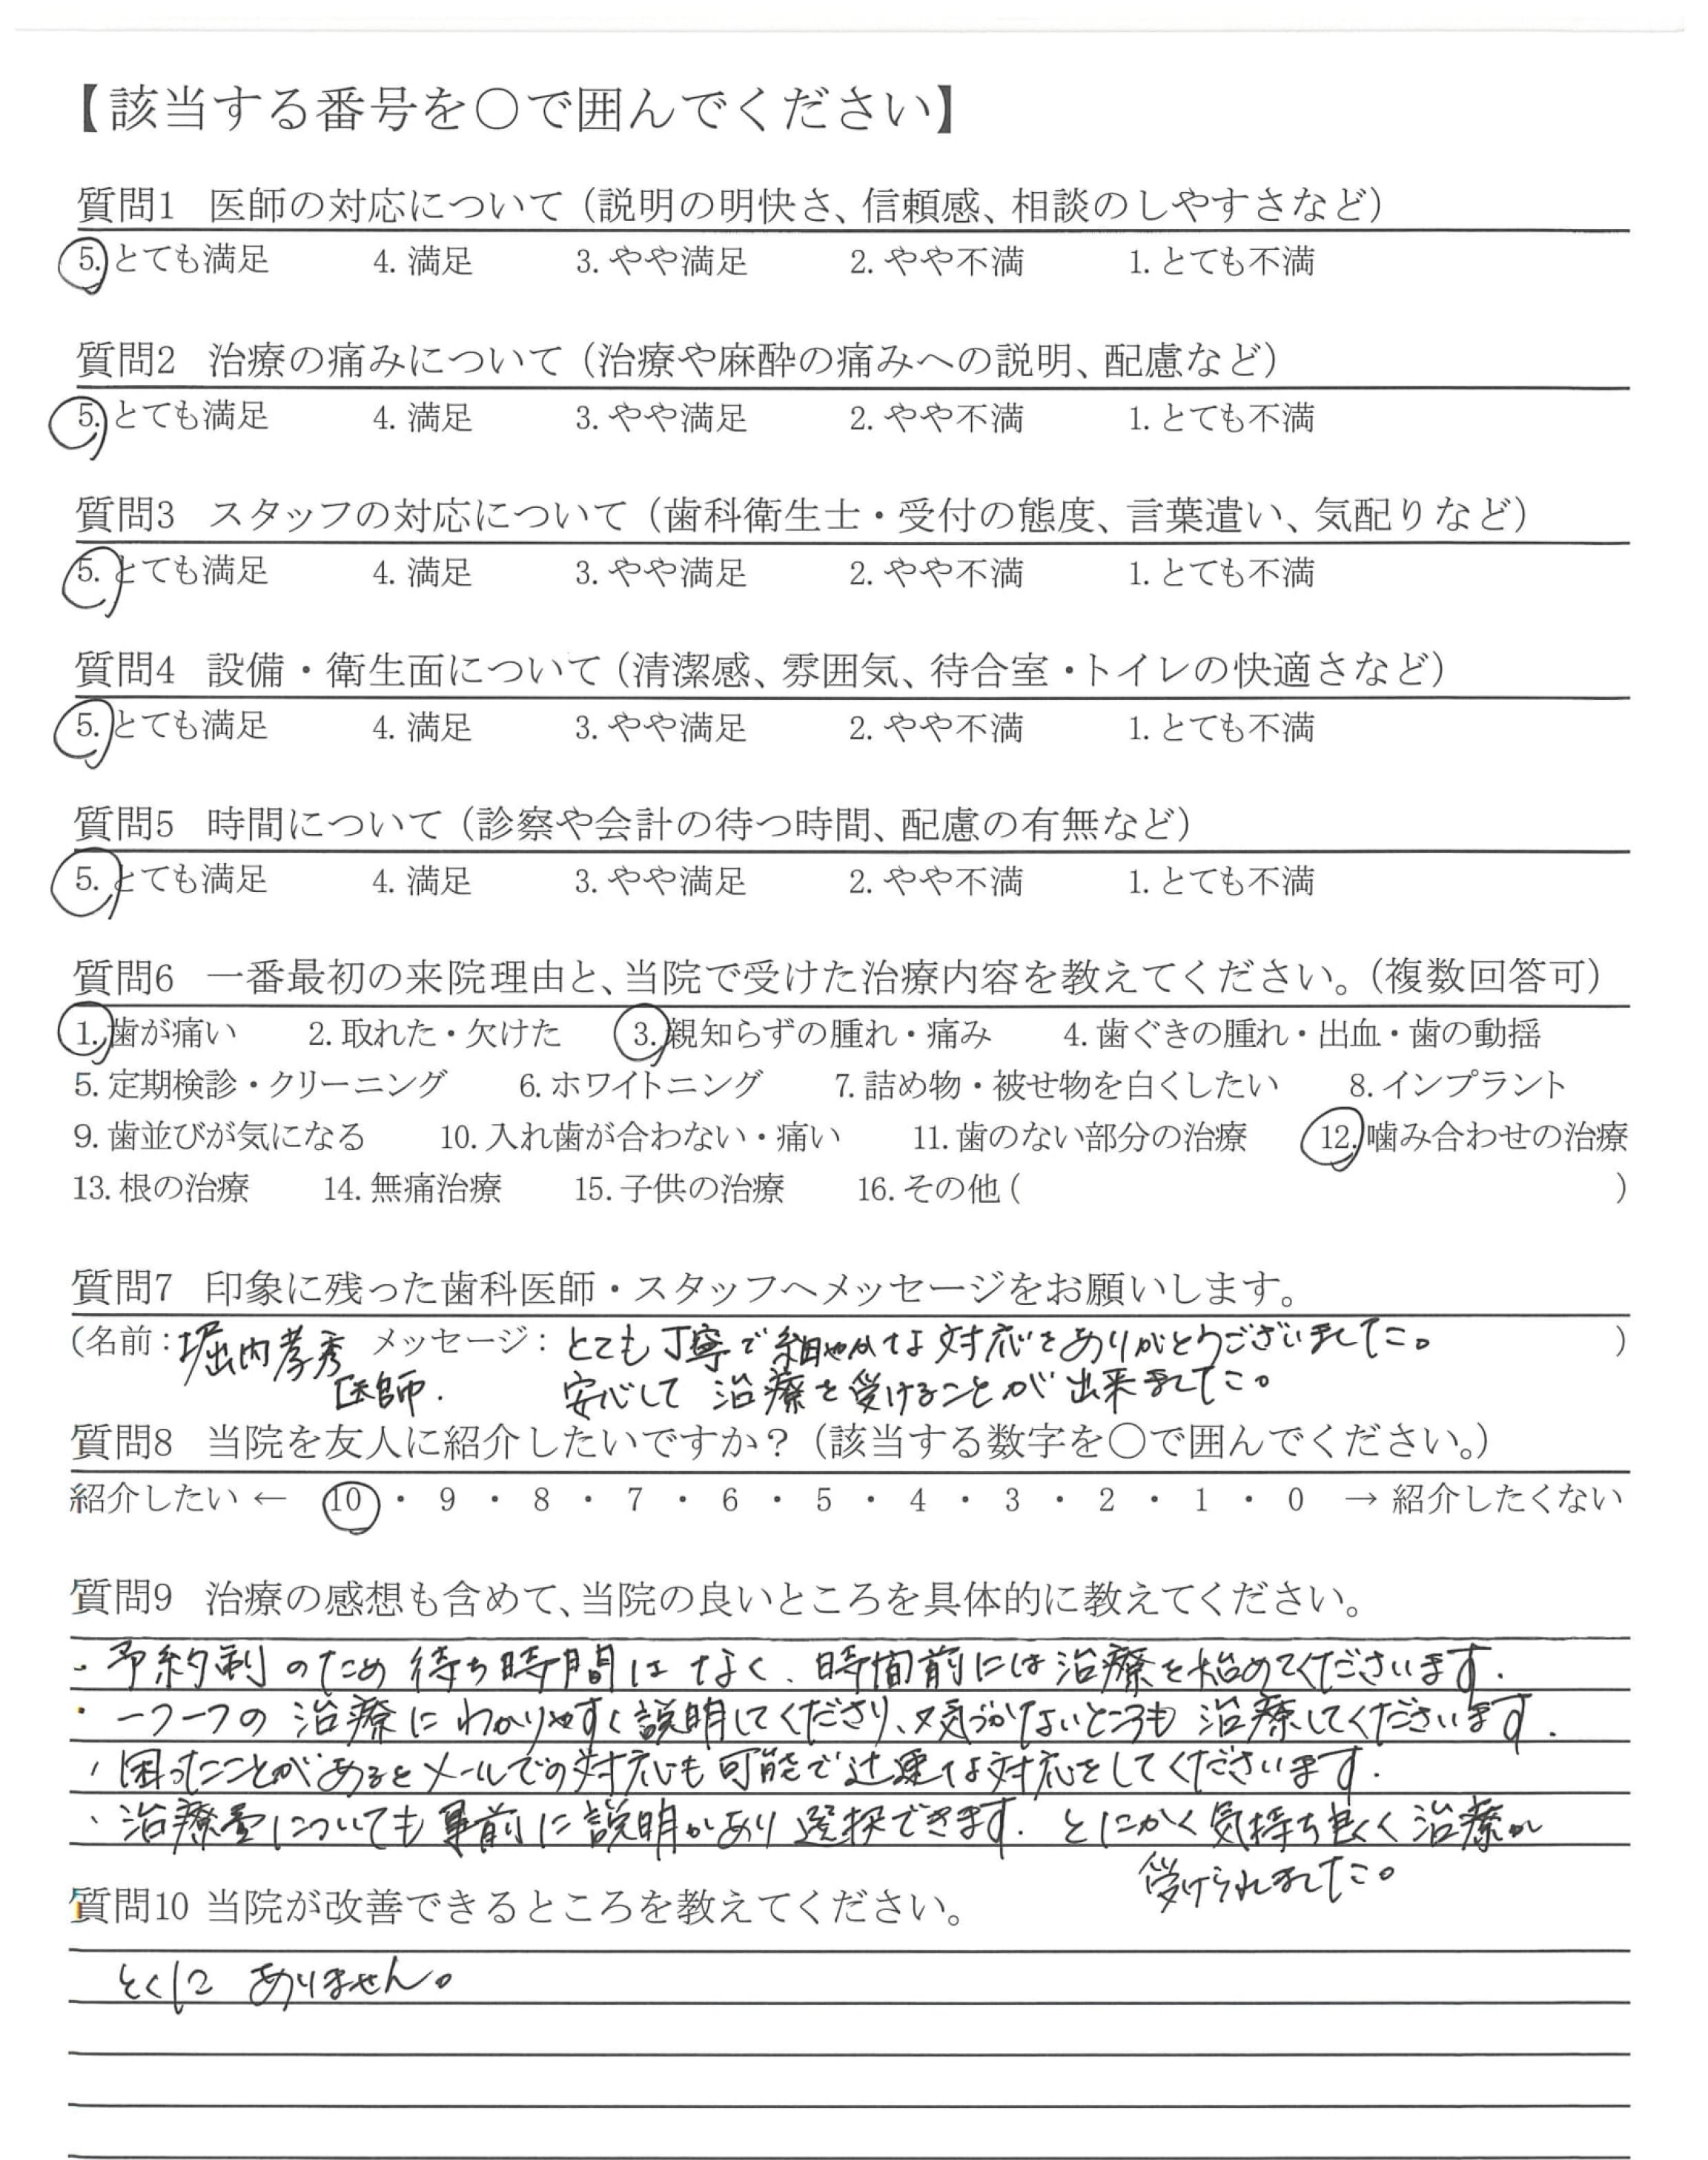 【該当する番号を○で囲んでください】
質問1 医師の対応について（説明の明快さ、信頼感、相談のしやすさなど）
5. とても満足 4. 満足 3. やや満足 2. やや不満 1. とても不満
質問2 治療の痛みについて（治療や麻酔の痛みへの説明、配慮など）
5. とても満足 4. 満足 3. やや満足 2. やや不満 1. とても不満
質問3 スタッフの対応について（歯科衛生士・受付の態度、言葉遣い、気配りなど）
5. とても満足 4. 満足 3. やや満足 2. やや不満 1. とても不満
質問4 設備・衛生面について（清潔感、雰囲気、待合室・トイレの快適さなど）
5. とても満足 4. 満足 3. やや満足 2. やや不満 1. とても不満
質問5 時間について（診察や会計の待つ時間、配慮の有無など）
5. とても満足 4. 満足 3. やや満足 2. やや不満 1. とても不満
質問6 一番最初の来院理由と、当院で受けた治療内容を教えてください。（複数回答可）
1. 歯が痛い 2. 取れた・欠けた 3. 親知らずの腫れ・痛み 4. 歯ぐきの腫れ・出血・歯の動揺
5. 定期検診・クリーニング 6. ホワイトニング 7. 詰め物・被せ物を白くしたい 8. インプラント
9. 歯並びが気になる 10. 入れ歯が合わない・痛い 11. 歯のない部分の治療 12. 噛み合わせの治療
13. 根の治療 14. 無痛治療 15. 子供の治療 16. その他（ ）
質問7 印象に残った歯科医師・スタッフへメッセージをお願いします。
（名前：堀内孝秀 メッセージ：とても丁寧で細やかな対応をありがとうございました。）
医師. 安心して治療を受けることが出来ました。
質問8 当院を友人に紹介したいですか？（該当する数字を○で囲んでください。）
紹介したい ← 10 ・ 9 ・ 8 ・ 7 ・ 6 ・ 5 ・ 4 ・ 3 ・ 2 ・ 1 ・ 0 → 紹介したくない
質問9 治療の感想も含めて、当院の良いところを具体的に教えてください。
・予約制のため待ち時間はなく、時間前には治療を始めてくださいます.
・一つ一つの治療にわかりやすく説明してくださり、又気づかないところも治療してくださいます.
・困ったことがあるとメールでの対応も可能で迅速な対応をしてくださいます.
・治療費についても事前に説明があり選択できます. とにかく気持ち良く治療が
受けられました。
質問10 当院が改善できるところを教えてください。
とくに ありません。